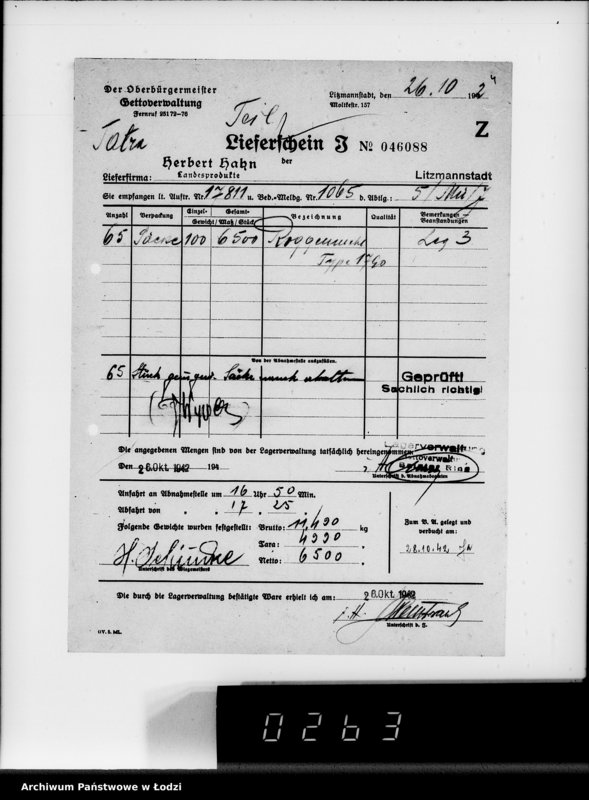 Der Oberbürgermeister
Gettoverwaltung
Fernruf 25172-76
Litzmannstadt, den 26.10 1942
Moltkestr. 157
Teil
Tatra
Z
Lieferschein J № 046088
der
Herbert Hahn
Landesprodukte
Lieferfirma:
Litzmannstadt
Sie empfangen lt. Auftr. Nr. 17811 u. Bed.-Meldg. Nr. 1065 d. Abtlg.: 5/
Anzahl Verpackung Einzel- Gesamt- Bezeichnung Qualität Bemerkungen Beanstandungen
Gewicht/Maß/Stück
65 Säcke 100 6500 Roggenmehl Lag 3
Type 1790
Von der Abnahmestelle auszufüllen.
65 Stück Säcke erhalten
Geprüft!
Sachlich richtig!
Die angegebenen Mengen sind von der Lagerverwaltung tatsächlich hereingenommen.
Lagerverwaltung
Gettoverwaltung
Den 26. Okt. 1942 194
Unterschrift d. Abnahmebeamten
Anfahrt an Abnahmestelle um 16 Uhr 50 Min.
Abfahrt von " " 17 " 25 "
Folgende Gewichte wurden festgestellt: Brutto: 11,490 kg
Tara: 4990 "
Netto: 6500 "
Unterschrift des Wiegemeisters
Zum B. A. gelegt und
verbucht am:
28.10.42
Die durch die Lagerverwaltung bestätigte Ware erhielt ich am: 26. Okt. 1942
Unterschrift d. J.
GV. 5. ML.
0263
Archiwum Państwowe w Łodzi